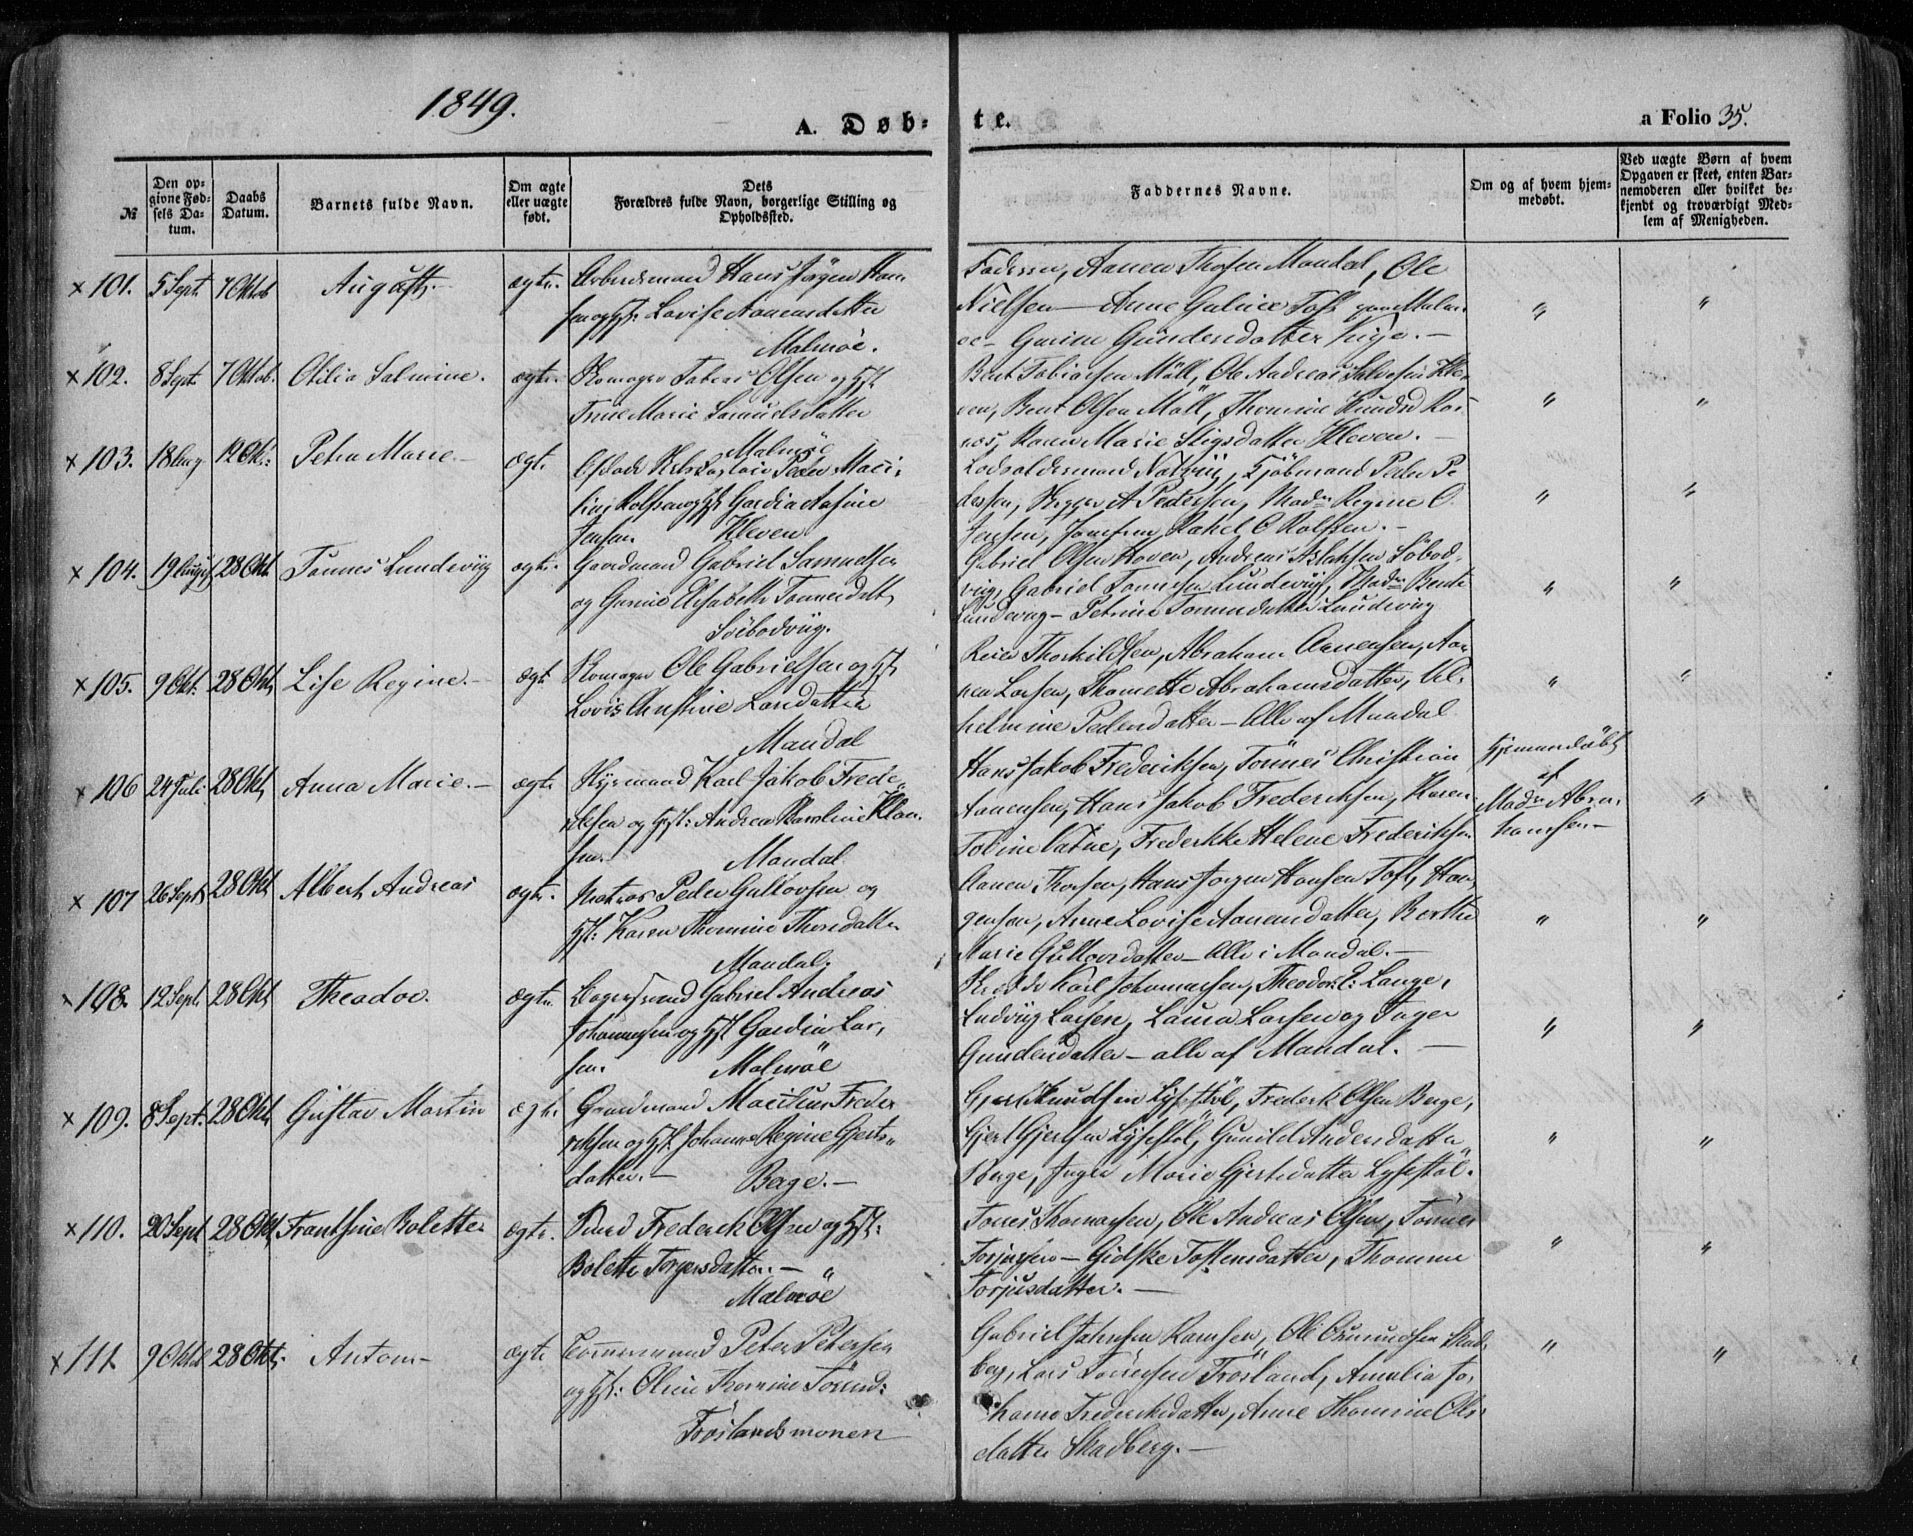 1849.
A. Døb-
te.
a Folio 35.
№
Den op-
givne Fød-
sels Da-
tum.
Daabs
Datum.
Barnets fulde Navn.
Om ægte
eller uægte
født.
Dets
Forældres fulde Navn, borgerlige Stilling og
Opholdssted.
Faddernes Navne.
Om og af hvem hjem-
medøbt.
Ved uægte Børn af hvem
Opgaven er skeet, enten Bar-
nemoderen eller hvilket be-
kjendt og troværdigt Med-
lem af Menigheden.
x 101. 5 Sept. 7 Oktob August. ægte. Arbeidsmand Hans Jørgen Han-
sen og Hst: Lovise Aanensdatter
Malmøe.
Fadderen, Aanen Thorsen Mandal, Ole
Nielsen — Anne Guline Toft
Gurine Gundersdatter Kige. —
" "
x 102. 8 Sept. 7 Oktob. Otilia Salmine. ægte. Tobias Olsen og Hst
Trine Marie Samuelsdatter
Malmöe
Bent Tobiassen Möll, Ole Andreas Salvesen Kle-
ven, Bent Olsen Möll, Thomine Knudsd Ros-
nes, Karen Marie Stigsdatter Kleven. —
" "
x 103. 18 Aug 12 Okt: Petra Marie. — ægte. Peder Maci-
lius Rolfsen og Hst Gardia Asine
Jensen. Kleven
Lodsoldermand Natvig, Kjöbmand Peder Pe-
dersen, Skipper A Pedersen, Madm Regine C.
Jensen, Jomfru Rakel C Rolfsen. —
" "
x 104. 19 August 28 Okt Tønnes Lundevig ægte. Gaardmand Gabriel Samuelsen
og Gurine Elisabeth Tönnesdatt,
Söebodvig.
Gabriel Olsen Hoven, Andreas Aslaksen Söbod-
vig, Gabriel Tønnesen Lundevig, Madm Bente
Lundevig — Petrine Tönnesdatter Lundevig
" "
x 105. 9 Okt. 28 Okt, Lise Regine. — ægte Ole Gabrielsen og Hst,
Lovis Christine Larsdatter
Mandal
Reier Thorkildsen, Abraham Aanensen, Aa-
nen Larsen, Thomette Abrahamsdatter, Vil-
helmine Pedersdatter — Alle af Mandal
" "
x 106 24 Juli 28 Okt, Anna Marie. — ægte Styrmand Karl Jakob Frede-
riksen og Hst: Andrea Karoline Klau-
sen. Mandal
Hans Jakob Frederiksen, Tönnes Christian
Aanensen, Hans Jakob Frederiksen, Karen
Tobine Vatne, Frederikke Helene Frederiksen
Hjemmedöbt
af
Madm Abra-
hamsen —
"
x 107 26 Sept, 28 Okt Albert Andreas ægte. Matros Peder Gullovsen og
Hst: Karen Thomine Thorsdatter
Mandal.
Aanen Thorsen, Hans Jørgen Hansen Toft,
Anne Lovise Aanensdatter, Berthe
Marie Gullovsdatter — Alle i Mandal. —
" "
x 108. 12 Sept. 28 Okt Theodor. ægte. Gabriel Andreas
Johannesen og Hst Gardine Lar-
sen. Malmöe
Karl Johannesen, Theodor E: Lange,
Ludvig Larsen, Laura Larsen og Inger
Gundersdatter — alle af Mandal. —
" "
x 109. 8 Sept. 28 Okt, Gustav Martin ægte Gaardmand Macilius Frede-
riksen og Hst. Johanne Regine Gjerts-
datter. — Berge. —
Gjert Knudsen Lysestöl, Frederik Olsen Berge,
Gjert Gjertsen Lysestöl, Gunild Andersdatter
Berge, Inger Marie Gjertsdatter Lysestöl.
" "
x 110. 20 Sept 28 Okt, Frantsine Bolette. ægte. Smed Frederik Olsen og Hst:
Bolette Torgersdatter. —
Malmöe
Torres Thomassen, Ole Andreas Olsen, Tönnes
Torjusen — Gidske Toftensdatter, Thomine
Torjusdatter. —
" "
x 111. 9 Oktob 28 Okt. Anton — ægte Tömmermand Peter Petersen
og Hst: Oline Thomine Tönnesd:
Tröslandsmonen
Gabriel Jahnsen Ramsen, Ole Osmundsen Skad-
berg, Lars Tönnesen Trösland, Amalia Jo-
hanne Frederiksdatter, Anne Thomine Ols-
datter Skadberg. —
" "